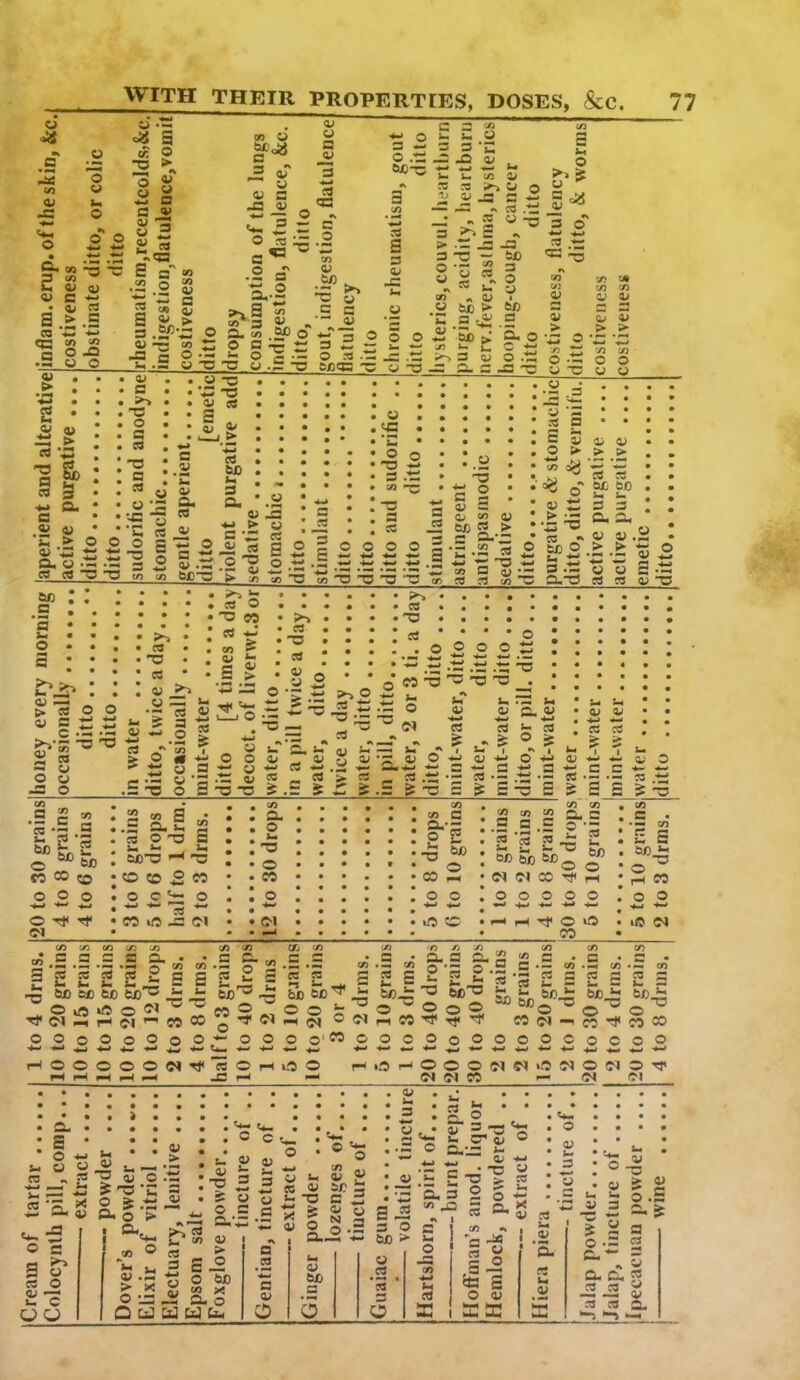 WITH THEIR PROPERTIES, DOSES, &c. 77
Cream of tartar ...... 1 to 4 drms. 20 to 30 grains honey every morning aperient and alterative inflam. erup. of the skin, &c.
Colocynth pill, comp... 10 to 20 grains 4 to 8 grains occasionally ........ active purgative .... costiveness
—— extract ..... 10 to 15 grains 4 to 6 grains ditto........ ditto........ obstinate ditto, or colic
—— powder ..... 10 to 15 grains ........ ditto ........ ditto........ ditto
Dover's powder ...... 10 to 20 grains 3 to 6 grains in water ........ sudorific and anodyne rheumatism,recentcolds,&c.
Elixir of vitriol ..... 10 to 12 drops 5 to 6 drops ditto, twice a day.... stomachic........ indigestion,flatulence,vomit
Electuary, lenitive .... 2 to 3 drms. half to 1 drm. occasionally ........ gentle aperient...... costiveness
Epsom salt ........ 4 to 8 drms. 2 to 3 drms. mint-water ........ ditto [emetic ditto
Foxglove powder...... half to 3 grains ........ ditto [4 times a day violent purgative add dropsy
—— tincture of .. 10 to 40 drops ........ decoct. of liverwt.3 or sedative ........ consumption of the lungs
Gentian, tincture of .. 1 to 2 drms 12 to 30 drops water, ditto ........ stomachic ........ indigestion, flatulence, &c.
—— extract of.... 5 to 10 grains ........ in a pill twice a day.. ditto ........ ditto, ditto
Ginger powder ...... 10 to 20 grains ........ water, ditto ........ stimulant ........ gout, indigestion, flatulence
—— lozenges of.... 3 or 4 ........ twice a day ........ ditto ........ flatulency
—— tincture of .... 1 to 2 drms. ........ water, ditto ........ ditto ........ ditto
Guaiac gum........ 5 to 10 grains ........ in pill, ditto........ ditto and sudorific .. chronic rheumatism, gout
—— volatile tincture 1 to 3 drms. ........ water, 2 or 3 ti. a day ditto ditto ...... ditto ditto
Hartshorn, spirit of.... 20 to 40 drops 5 to 8 drops ditto, ditto .... stimulant ........ hysterics, couvul. heartburn
—— burnt prepar. 20 to 40 grains 6 to 10 grains mint-water, ditto .... astringeent ........ purging, acidity, heartburn
Hoffman's anod. liquor 30 to 40 drops ........ water, ditto .... antispasmodic ...... nerv.fever,asthma,hysterics
Hemlock, powdered .. 2 to 3 grains 1 to 2 grains mint-water ditto .... sedative ........ hooping-cough, cancer
—— extract of .. 2 to 3 grains 1 to 2 grains ditto, or pill. ditto .... ditto........ ditto ditto
Hiera piera ........ 15 to 20 grains 4 to 8 grains mint-water ........ purgative & stomachic costiveness, flatulency
—— tincture of.. 2 to 1 drms. 30 to 40 drops water ........ ditto, ditto, & vermifu. ditto ditto, & worms
Jalap powder........ 20 to 30 grains 5 to 10 grains mint-water ........ active purgative .... costiveness
Jalap, tincture of ...... 2 to 4 drms. ........ mint-water ........ active purgative .... costiveness
Ipecacuan powder .... 20 to 30 grains 5 to 10 grains water ........ emetic ........
—— wine ...... 4 to 8 drms. 2 to 3 drms. ditto ........ ditto........